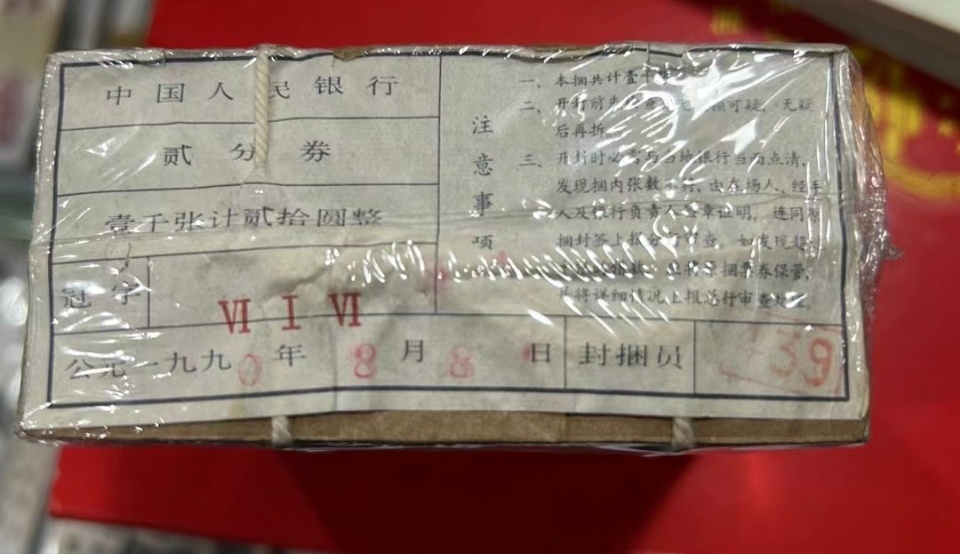 中国人民银行
贰分券
壹千张计贰拾圆整
冠字
Ⅵ Ⅰ Ⅵ
公元一九九0年8月8日
封捆员
39
注意事项
一、本捆共计壹千
二、开封前先 可疑，无疑
后再拆
三、开封时必需与当地银行当面点清，
发现捆内张数不符，由在场人、经手
人及银行负责人签章证明，连同
捆封签上报分行审查，如发现
原捆票券保管，
并将详细情况上报总行审查